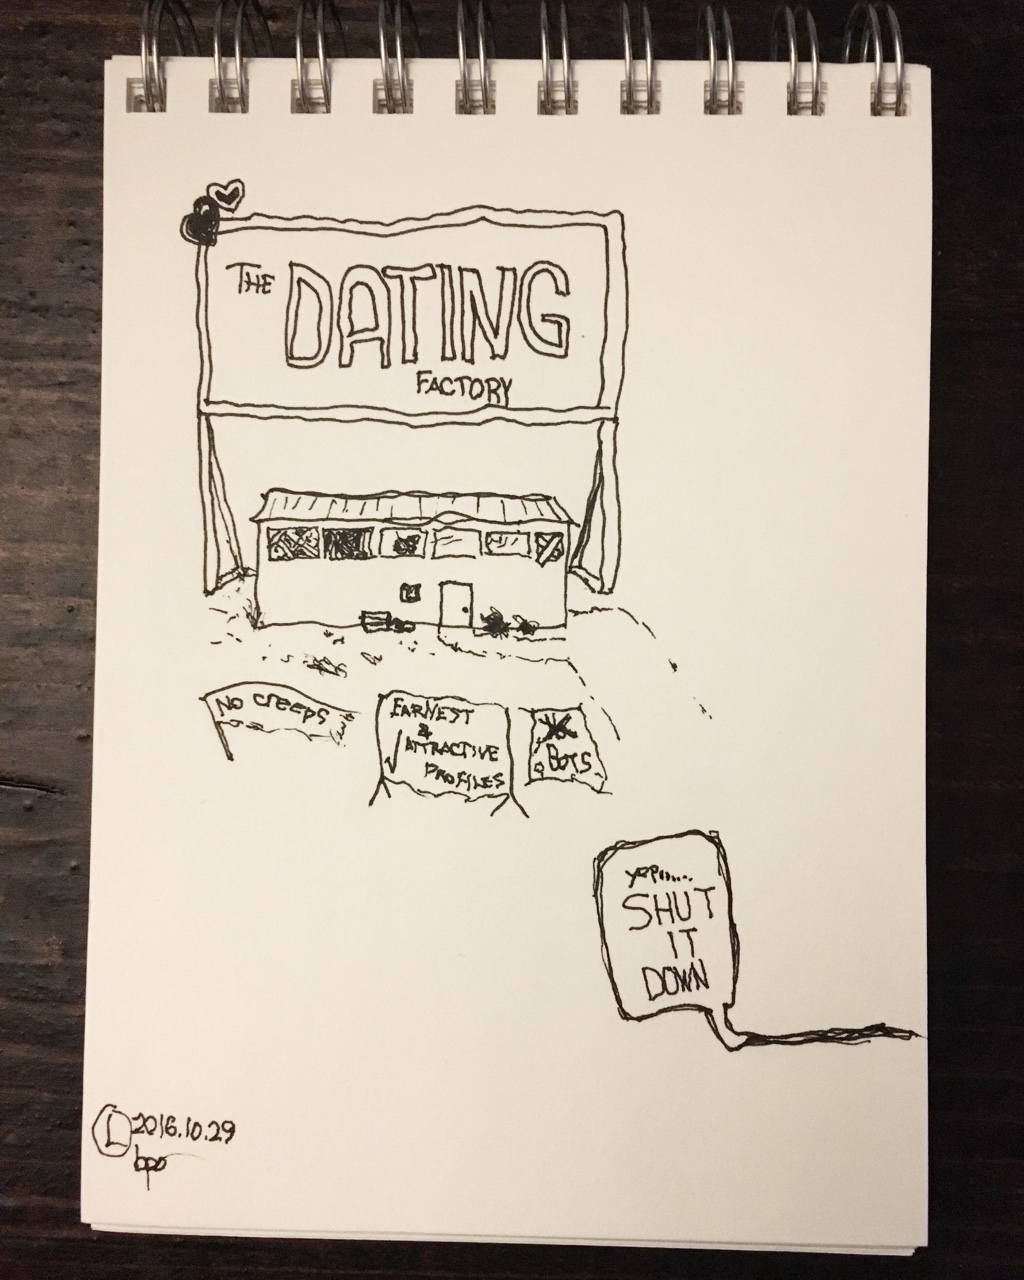 THE DATING
FACTORY
NO CREEPS
EARNEST
&
ATTRACTIVE
PROFILES
BOTS
yep.....
SHUT
IT
DOWN
L 2016.10.29
bpo